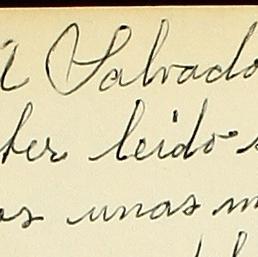 A Salvado
ber leido
os unas m